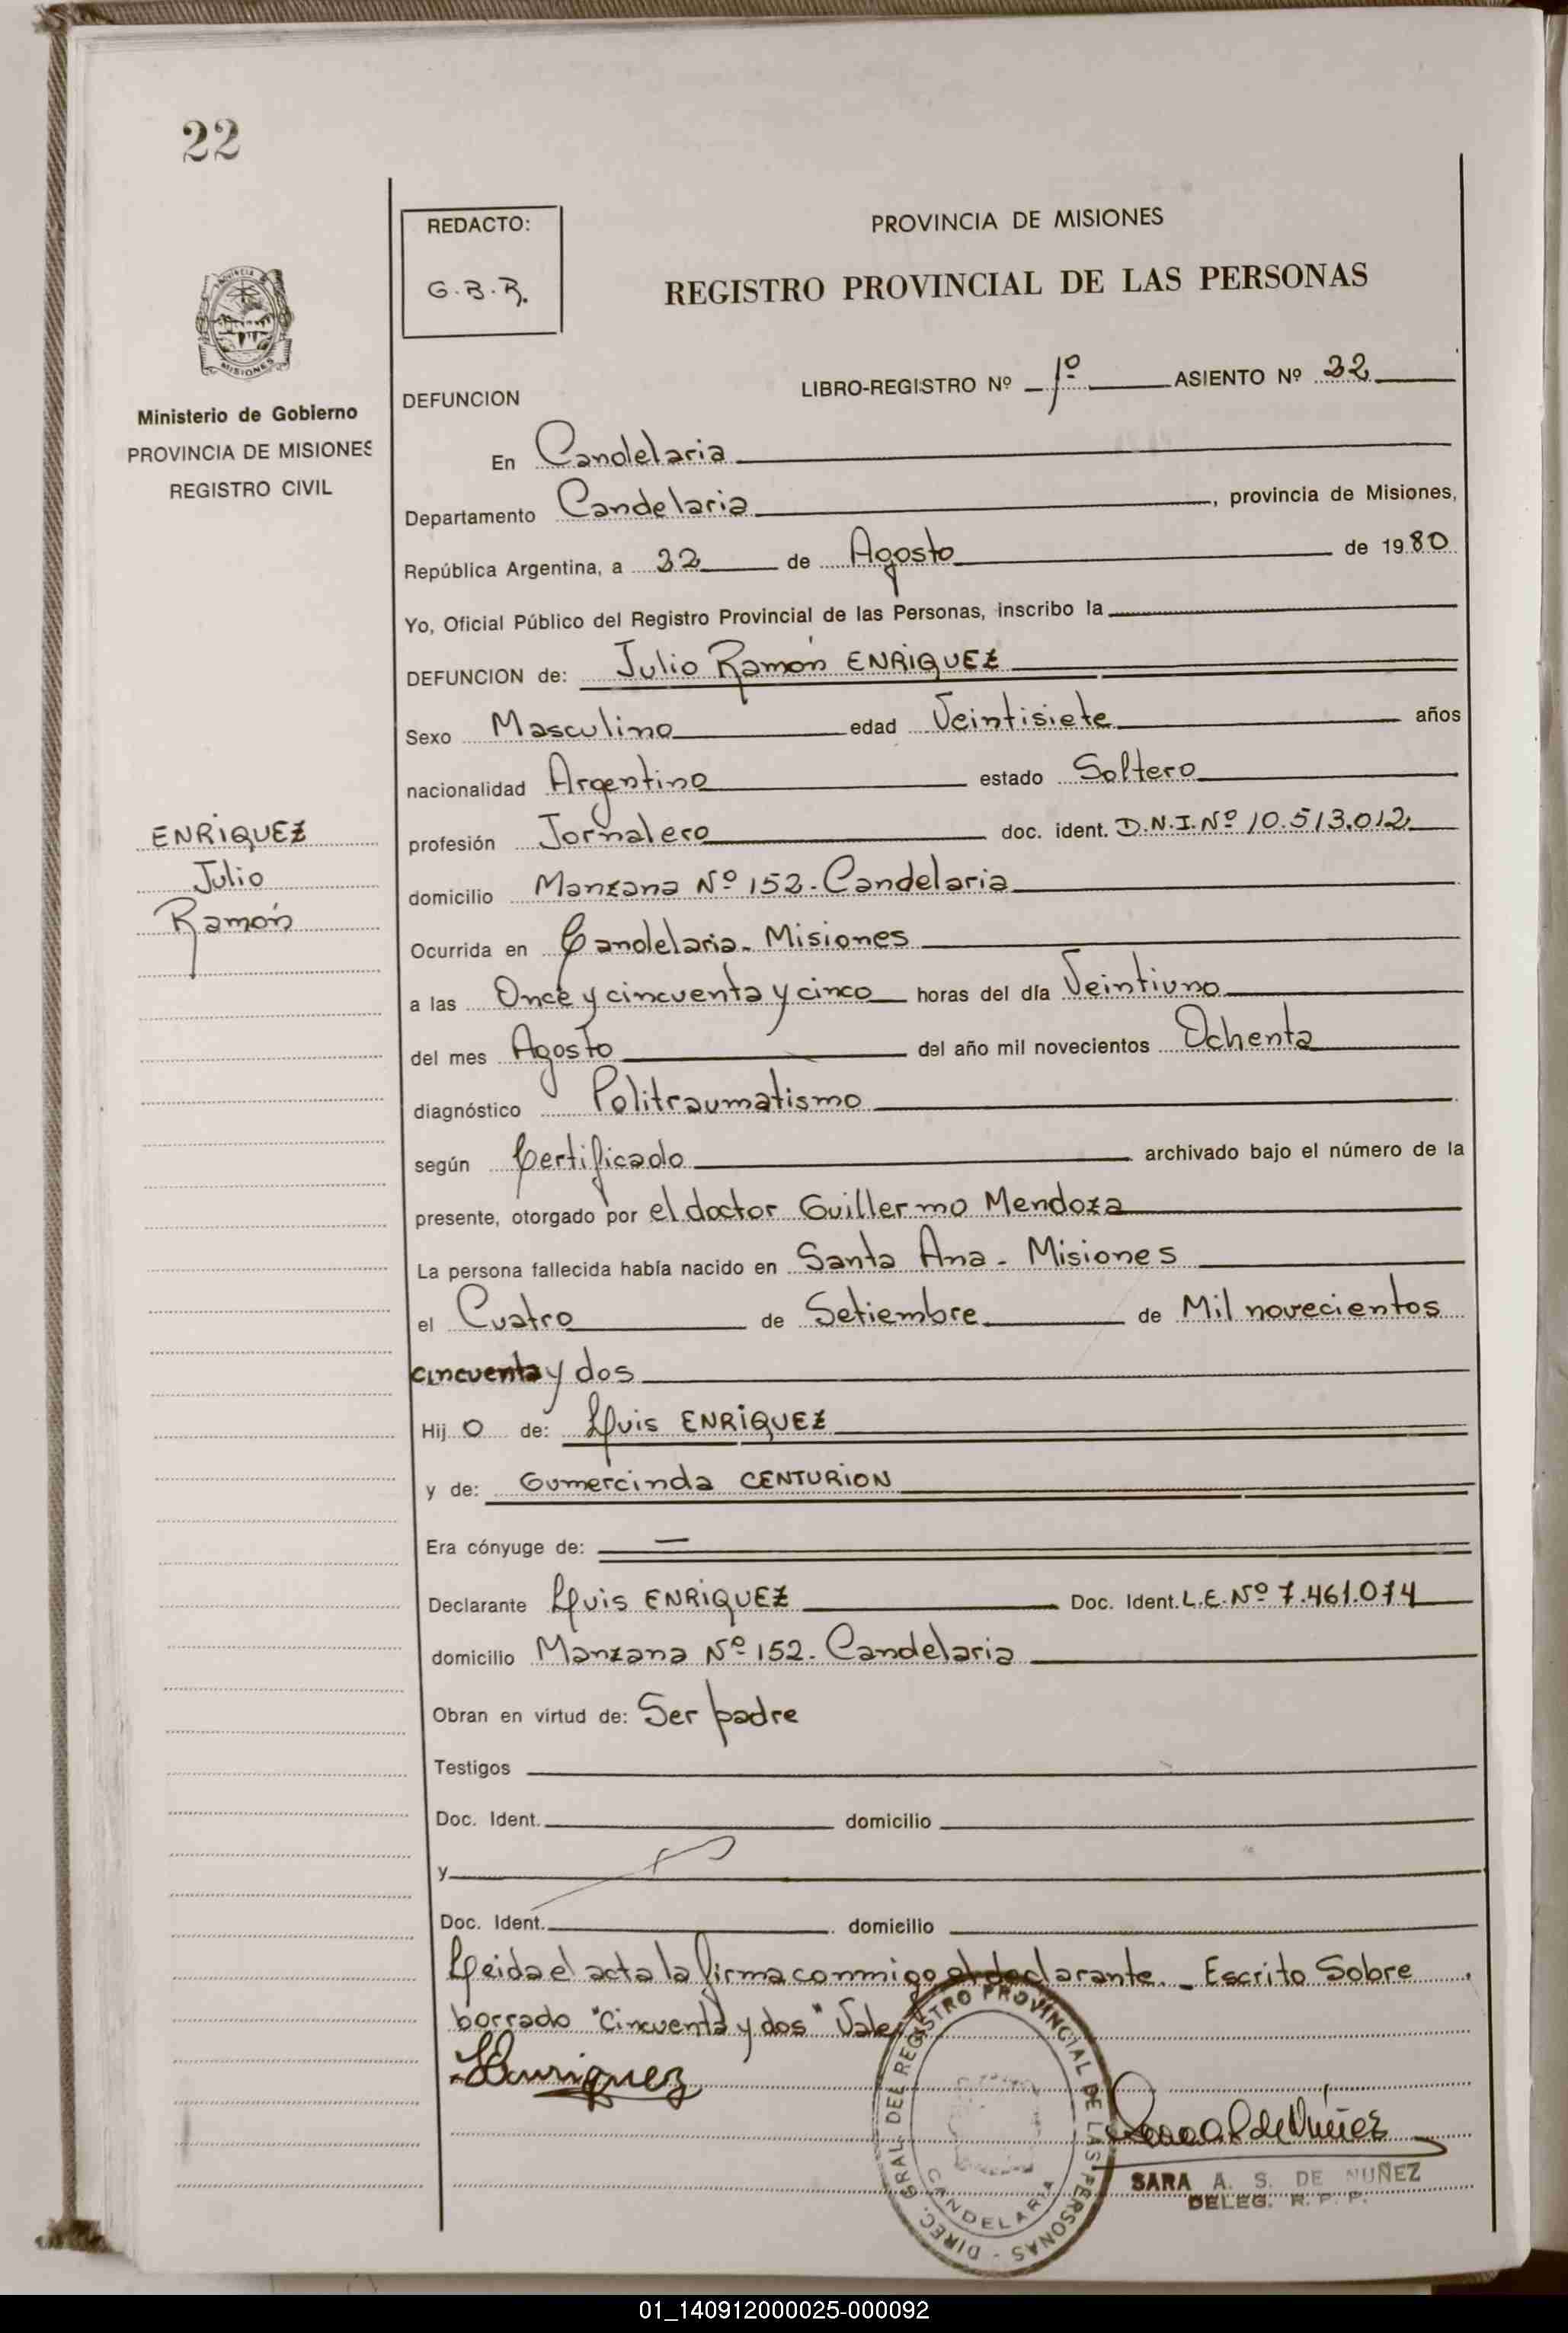 22
REDACTO:
G.B.R.
PROVINCIA DE MISIONES
REGISTRO PROVINCIAL DE LAS PERSONAS
PROVINCIA
MISIONES
Ministerio de Gobierno
PROVINCIA DE MISIONES
REGISTRO CIVIL
DEFUNCION LIBRO-REGISTRO Nº 1º ASIENTO Nº 22
En Candelaria
Departamento Candelaria, provincia de Misiones,
República Argentina, a 22 de Agosto de 1980
Yo, Oficial Público del Registro Provincial de las Personas, inscribo la
DEFUNCION de: Julio Ramón ENRIQUEZ
Sexo Masculino edad Veintisiete años
nacionalidad Argentino estado Soltero
profesión Jornalero doc. ident. D.N.I. Nº 10.513.012
domicilio Manzana Nº 152. Candelaria
Ocurrida en Candelaria - Misiones
a las Once y cincuenta y cinco horas del día Veintiuno
del mes Agosto del año mil novecientos Ochenta
diagnóstico Politraumatismo
según Certificado archivado bajo el número de la
presente, otorgado por el doctor Guillermo Mendoza
La persona fallecida había nacido en Santa Ana - Misiones
el Cuatro de Setiembre de Mil novecientos
cincuenta y dos
Hij o de: Luis ENRIQUEZ
y de: Gumercinda CENTURION
Era cónyuge de: —
Declarante Luis ENRIQUEZ Doc. Ident. L.E. Nº 7.461.074
domicilio Manzana Nº 152. Candelaria
Obran en virtud de: Ser padre
Testigos
Doc. Ident. domicilio
y
Doc. Ident. domicilio
Leida el acta la firma conmigo el declarante. - Escrito Sobre
borrado "Cincuenta y dos" Vale
LEnriquez
Sara A S de Nuñez
SARA A. S. DE NUÑEZ
DELEG. R. P. P.
DIREC. GRAL. DEL REGISTRO PROVINCIAL DE LAS PERSONAS -
CANDELARIA
ENRIQUEZ
Julio
Ramón
01_140912000025-000092